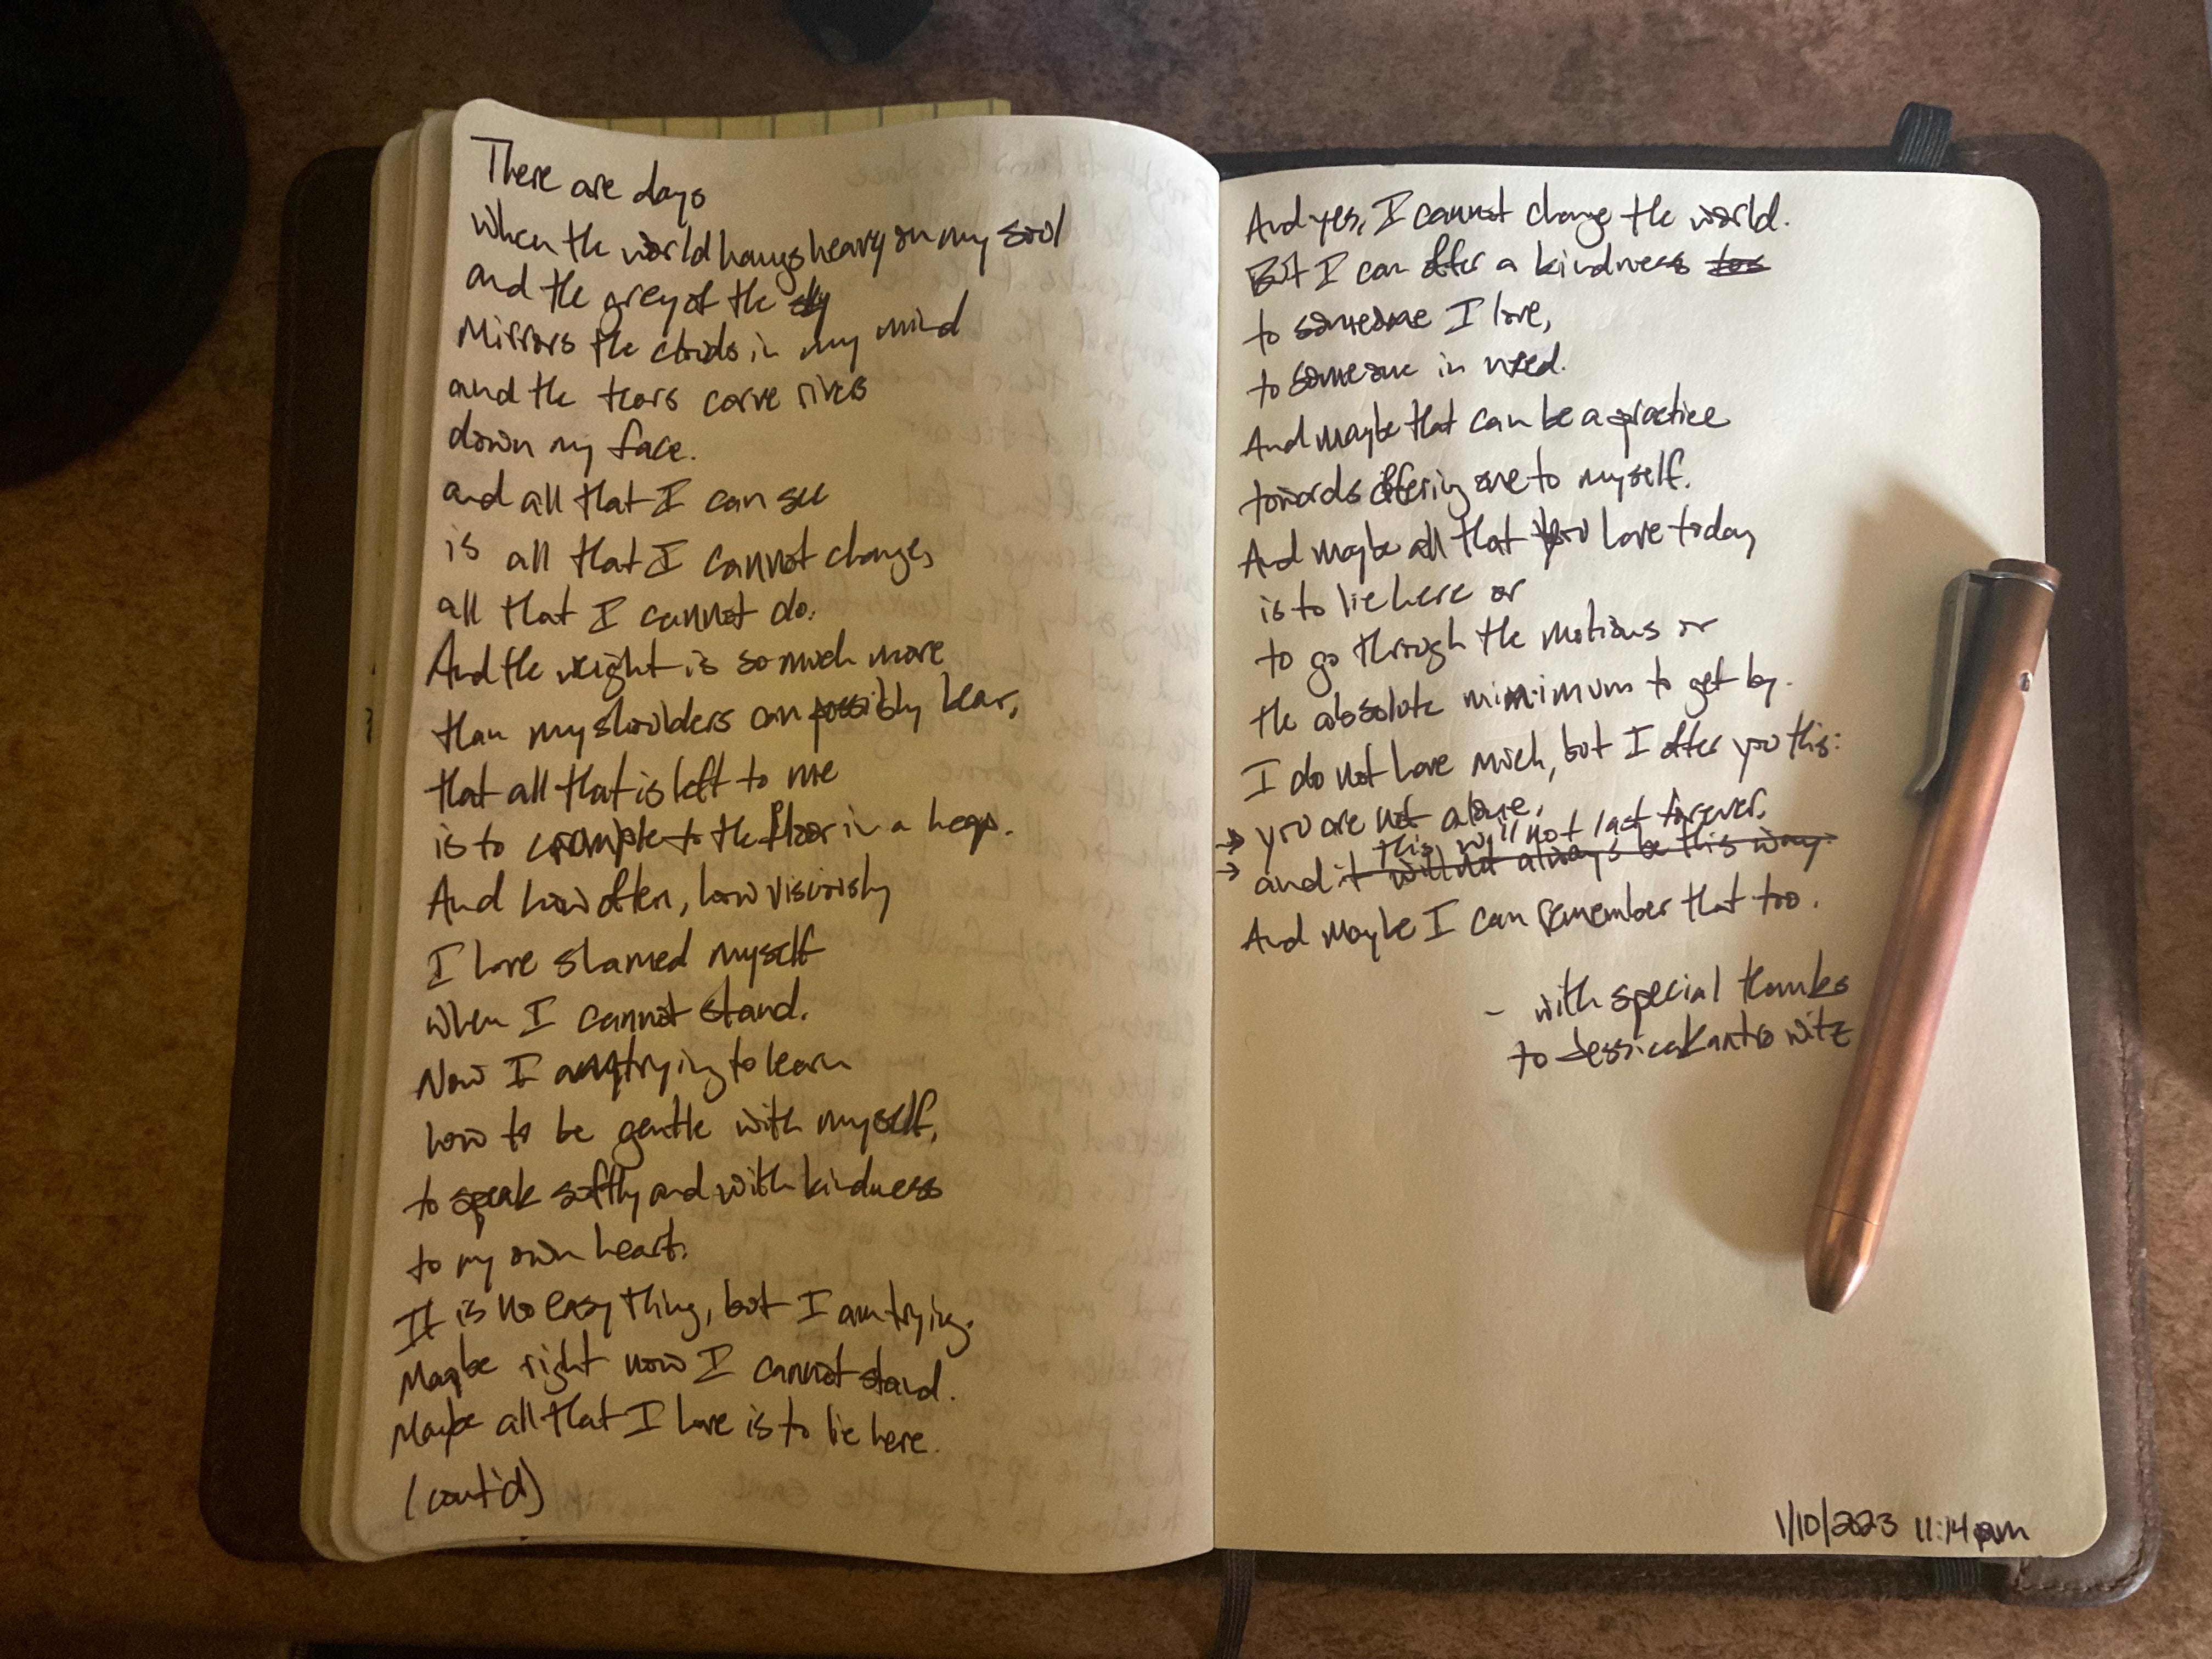 There are days
when the world hangs heavy on my soul
and the grey of the sky
Mirrors the clouds in my mind
and the tears carve rivers
down my face.
and all that I can see
is all that I cannot change,
all that I cannot do.
And the weight is so much more
than my shoulders can possibly bear,
that all that is left to me
is to crumple to the floor in a heap.
And how often, how viciously
I have shamed myself
when I cannot stand.
Now I am trying to learn
how to be gentle with myself,
to speak softly and with kindness
to my own heart.
It is no easy thing, but I am trying.
Maybe right now I cannot stand.
Maybe all that I have is to lie here.
(cont'd)
And yes, I cannot change the world.
But I can offer a kindness
to someone I love,
to someone in need.
And maybe that can be a practice
towards offering one to myself.
And maybe all that you have today
is to lie here or
to go through the motions or
the absolute minimum to get by.
I do not have much, but I offer you this:
→ you are not alone,
this will not last forever.
→ and it will not always be this way.
And maybe I can remember that too.
- with special thanks
to Jessica Kantrowitz
1/10/2023 11:14 pm